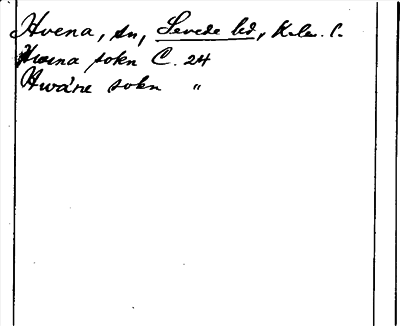 Hvena, sn, Sevede hd, K.la. C.
Hwena sokn C. 24
Hwa'ne sokn "